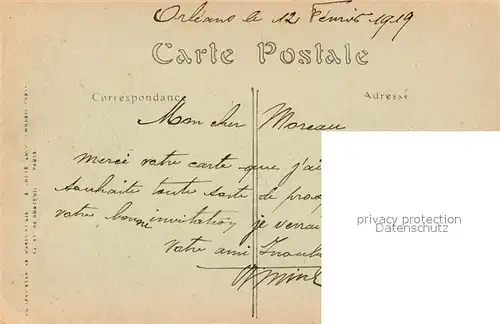 Orléans le 12 Février 1919
Carte Postale
Correspondance
Adresse
Mon cher Moreau
Merci votre carte que j'ai
souhaite toute sorte de prosp
votre bonne invitation, je verrai
Votre ami
privacy protection
Datenschutz